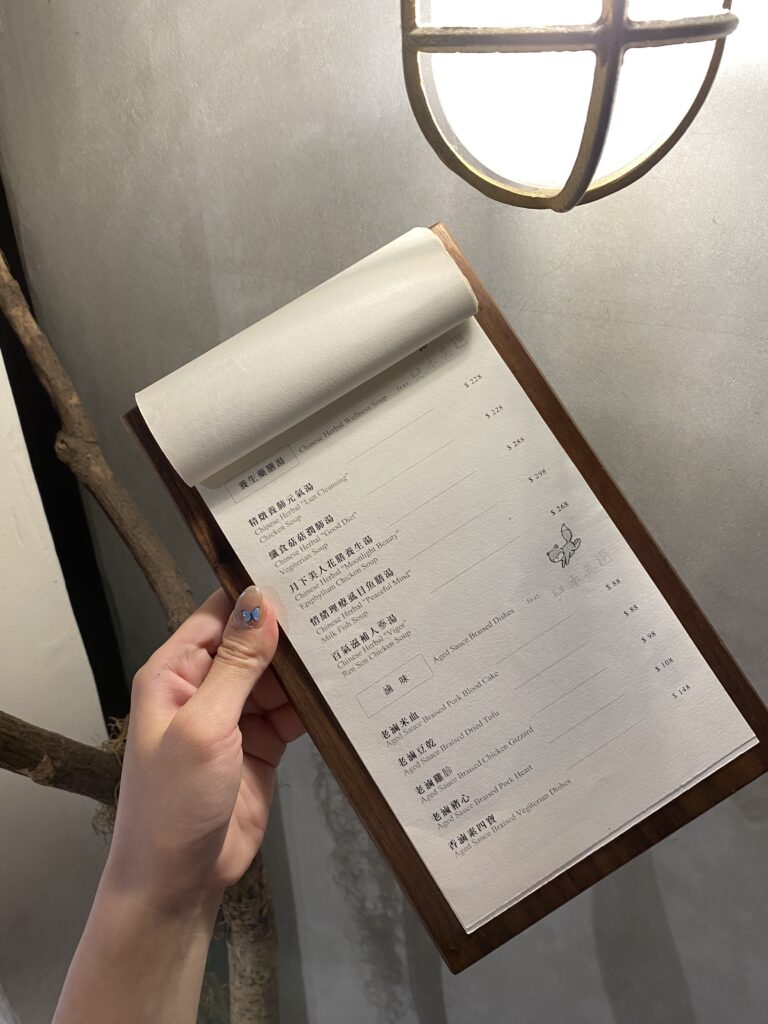 養生藥膳湯 Chinese Herbal Wellness Soup feat.
精燉養肺元氣湯 $ 228
Chinese Herbal "Lun Cleansing"
Chicken Soup
纖食菇菇潤肺湯 $ 228
Chinese Herbal "Good Diet"
Vegiterian Soup
月下美人花膳養生湯 $ 288
Chinese Herbal "Moonlight Beauty"
Epiphyllum Chicken Soup
情緒理療虱目魚膳湯 $ 298
Chinese Herbal "Peaceful Mind"
Milk Fish Soup
百氣滋補人蔘湯 $ 268
Chinese Herbal "Vigor"
Ren Sen Chicken Soup
滷味 Aged Sauce Braised Dishes feat.
老滷米血 $ 88
Aged Sauce Braised Pork Blood Cake
老滷豆乾 $ 88
Aged Sauce Braised Dried Tofu
老滷雞胗 $ 98
Aged Sauce Braised Chicken Gizzard
老滷豬心 $ 108
Aged Sauce Braised Pork Heart
香滷素四寶 $ 148
Aged Sauce Braised Vegiterian Dishes